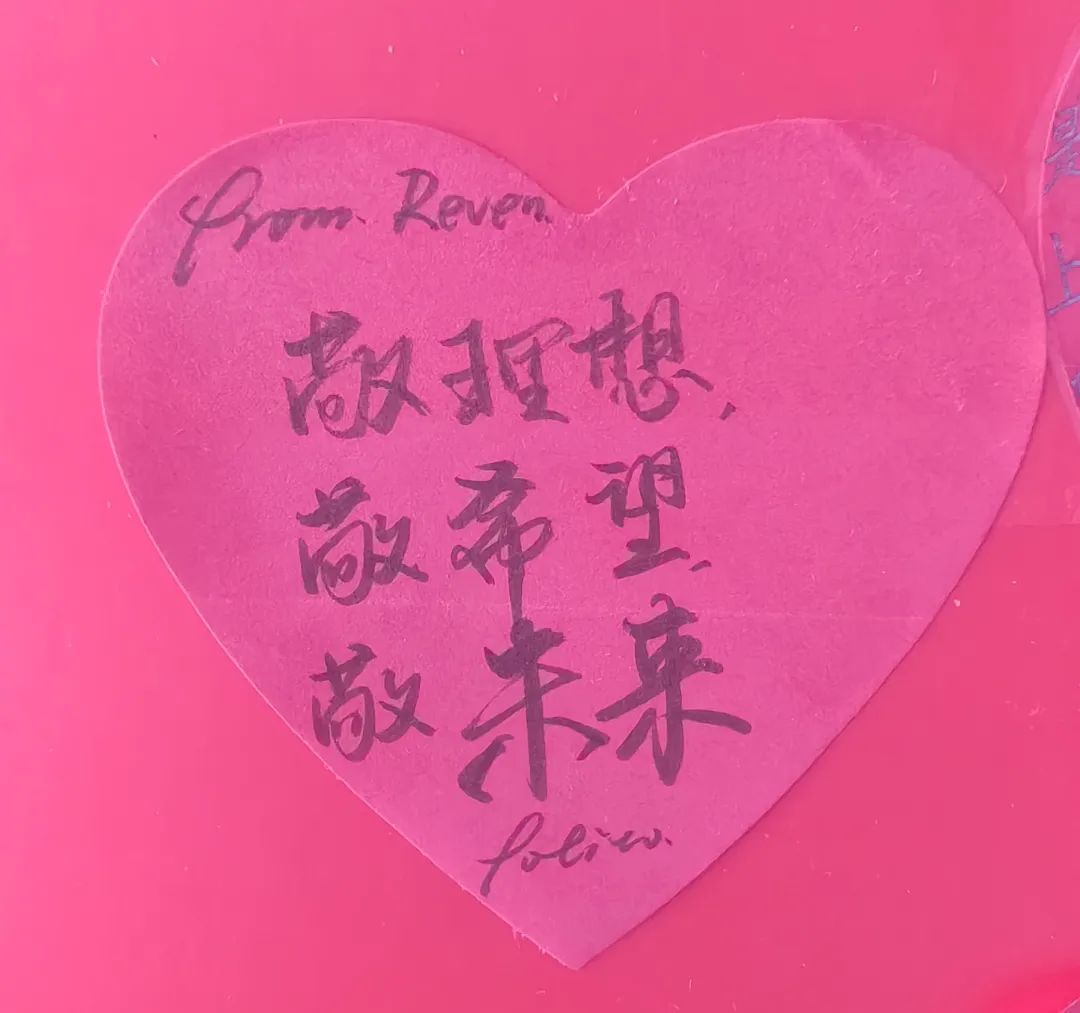 from Reven.
敬理想,
敬希望.
敬未来